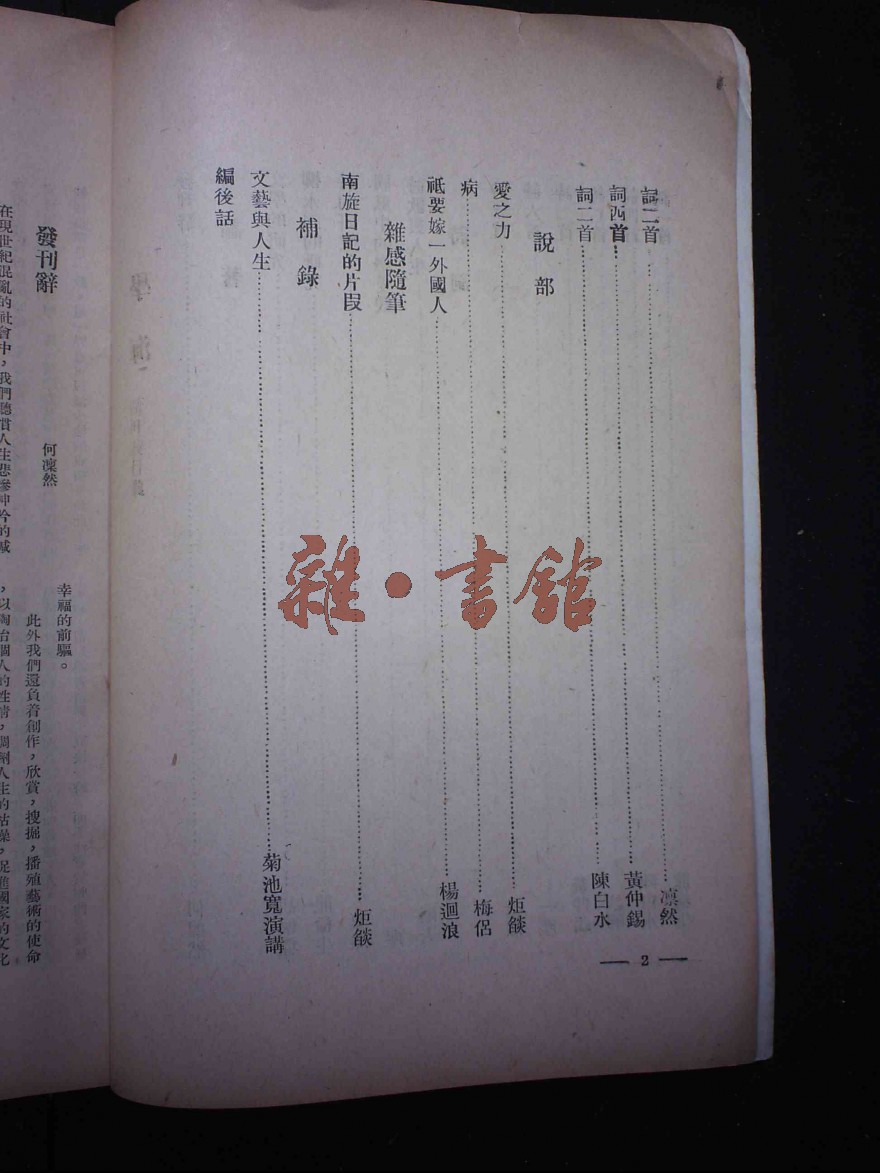 詞二首 凛然
詞四首 黃仲錫
詞二首 陳白水
說部
愛之力 炬燄
病 梅侶
祗要嫁一外國人 楊迴浪
雜感隨筆
南旋日記的片段 炬燄
補錄
文藝與人生 菊池寬演講
編後話
2
雜·書館
幸福的前驅。
此外我們還負着創作,欣賞,搜掘,播殖藝術的使命
,以陶冶個人的性情,調劑人生的枯燥,促進國家的文化
發刊辭
何凜然
在現世紀混亂的社會中,我們聽慣人生悲慘呻吟的喊